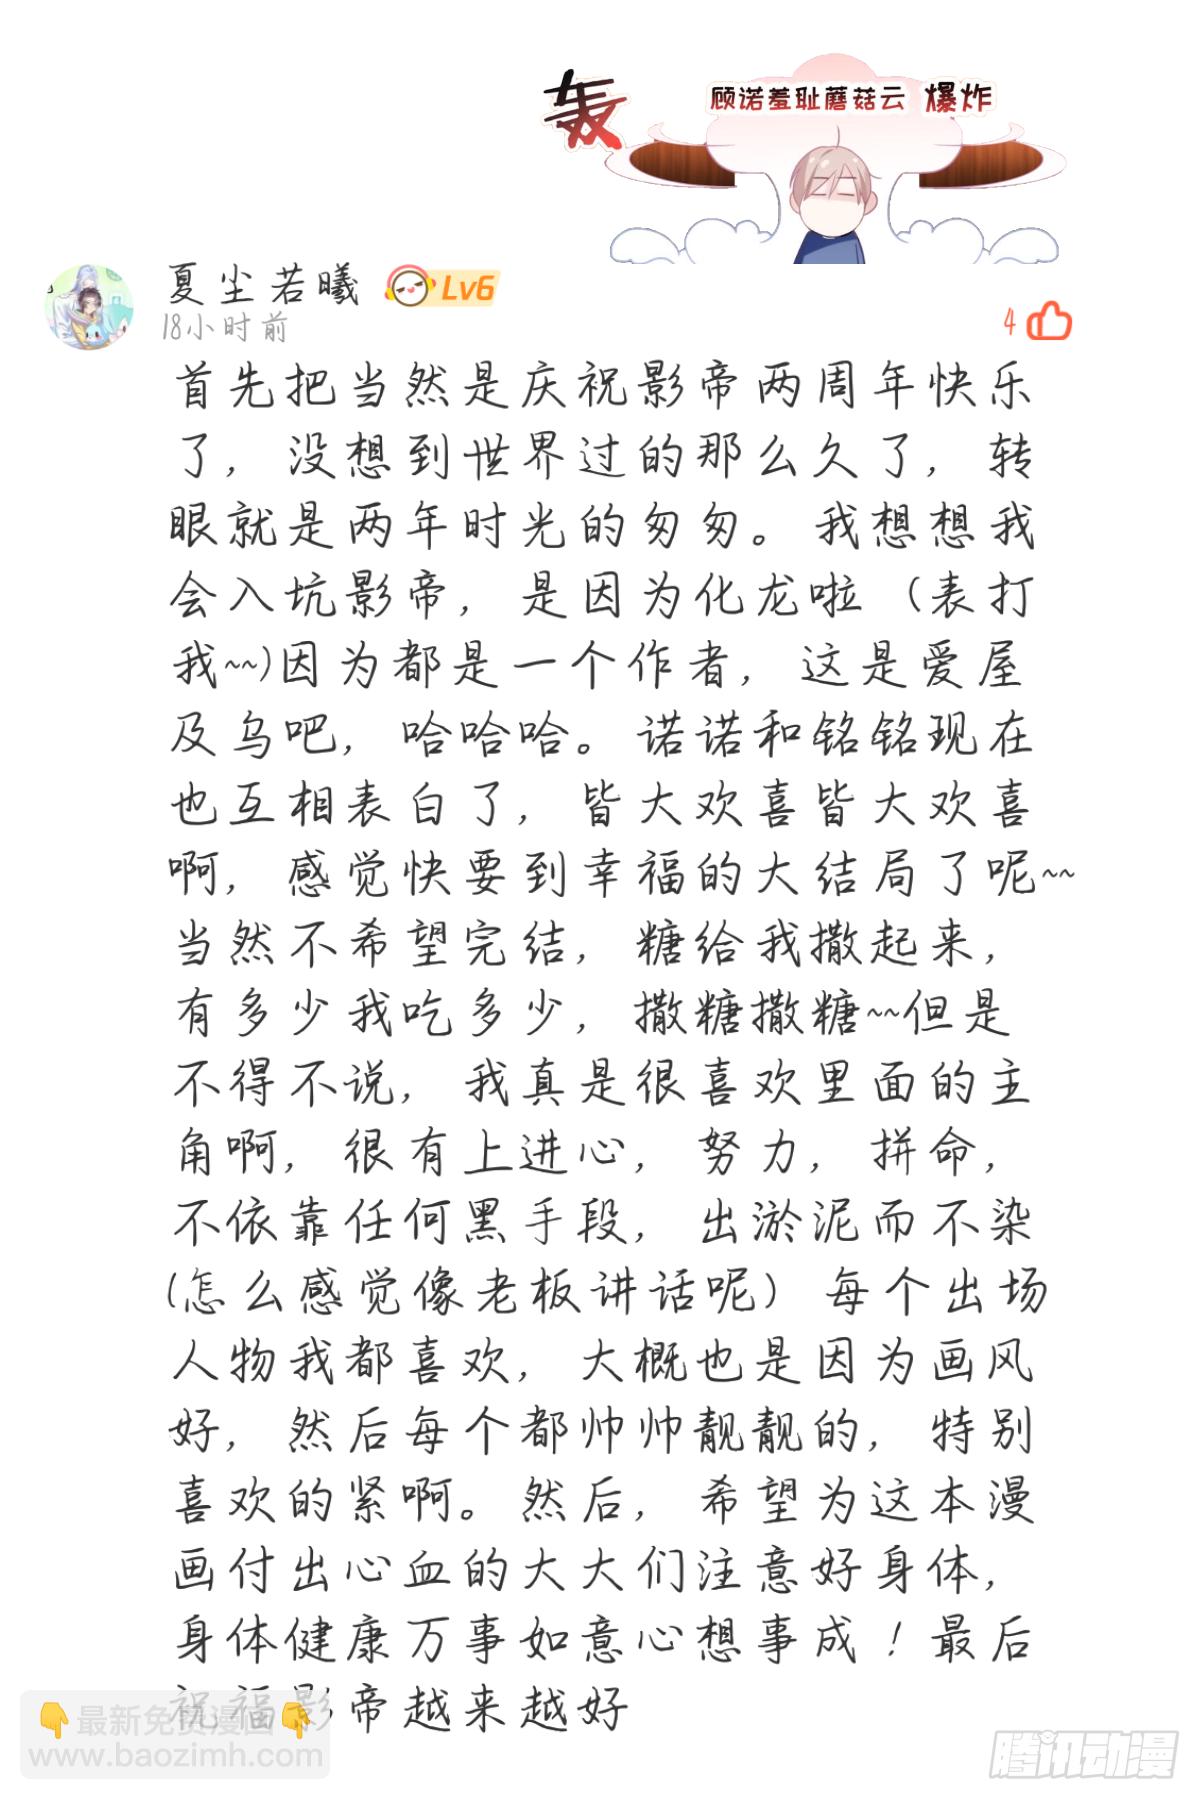 轰
顾诺羞耻蘑菇云 爆炸
夏尘若曦 Lv6
18小时前
4
首先把当然是庆祝影帝两周年快乐
了，没想到世界过的那么久了，转
眼就是两年时光的匆匆。我想想我
会入坑影帝，是因为化龙啦（表打
我~~)因为都是一个作者，这是爱屋
及乌吧，哈哈哈。诺诺和铭铭现在
也互相表白了，皆大欢喜皆大欢喜
啊，感觉快要到幸福的大结局了呢~~
当然不希望完结，糖给我撒起来，
有多少我吃多少，撒糖撒糖~~但是
不得不说，我真是很喜欢里面的主
角啊，很有上进心，努力，拼命，
不依靠任何黑手段，出淤泥而不染
(怎么感觉像老板讲话呢）每个出场
人物我都喜欢，大概也是因为画风
好，然后每个都帅帅靓靓的，特别
喜欢的紧啊。然后，希望为这本漫
画付出心血的大大们注意好身体，
身体健康万事如意心想事成！最后
祝福影帝越来越好
👇最新免费漫画👇
www.baozimh.com
腾讯动漫